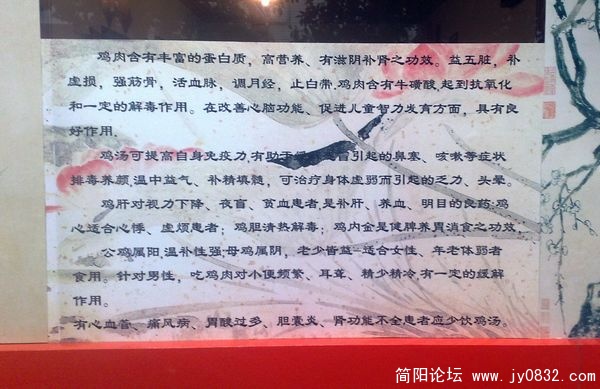 鸡肉含有丰富的蛋白质，高营养、有滋阴补肾之功效。益五脏，补
虚损，强筋骨，活血脉，调月经，止白带.鸡肉含有牛磺酸.起到抗氧化
和一定的解毒作用。在改善心脑功能、促进儿童智力发育方面，具有良
好作用.
鸡汤可提高自身免疫力.有助于 冒引起的鼻塞、咳嗽等症状
排毒养颜.温中益气、补精填髓，可治疗身体虚弱而引起的乏力、头晕。
鸡肝对视力下降、夜盲、贫血患者.是补肝、养血、明目的良药.鸡
心适合心悸、虚烦患者；鸡胆清热解毒；鸡内金是健脾养胃消食之功效，
公鸡属阳.温补性强.母鸡属阴，老少皆益-适合女性、年老体弱者
食用。针对男性，吃鸡肉对小便频繁、耳聋、精少精冷.有一定的缓解
作用。
有心血管、痛风病、胃酸过多、胆囊炎、肾功能不全患者应少饮鸡汤。
简阳论坛 www.jy0832.com